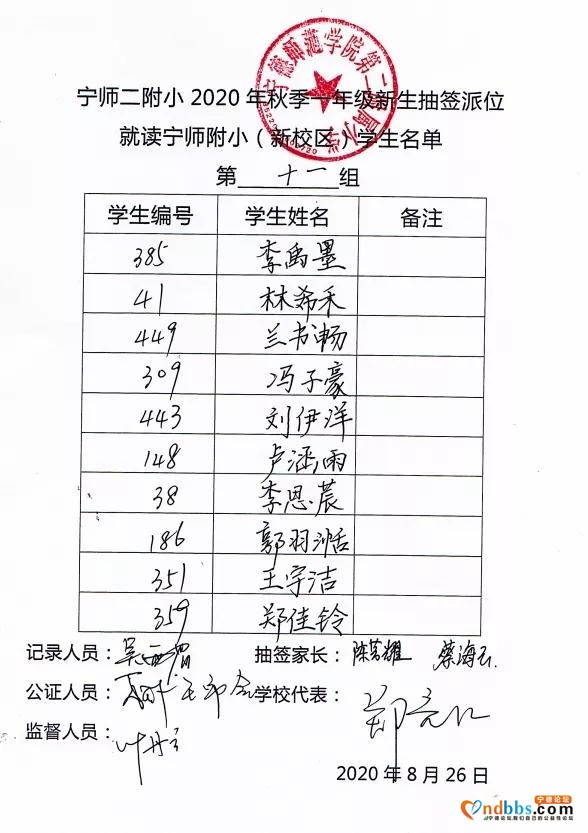 宁德师范学院第二附属小学
宁师二附小 2020 年秋季一年级新生抽签派位
就读宁师附小（新校区）学生名单
第 十一 组
学生编号 学生姓名 备注
385 李禹墨
41 林希禾
449 兰书畅
309 冯子豪
443 刘伊洋
148 卢涵雨
38 李思晨
186 郭羽湉
351 王宇洁
359 郑佳铃
记录人员： 抽签家长： 蔡海云
公证人员： 学校代表：
监督人员：
2020 年 8 月 26 日
宁德论坛
ndbbs.com